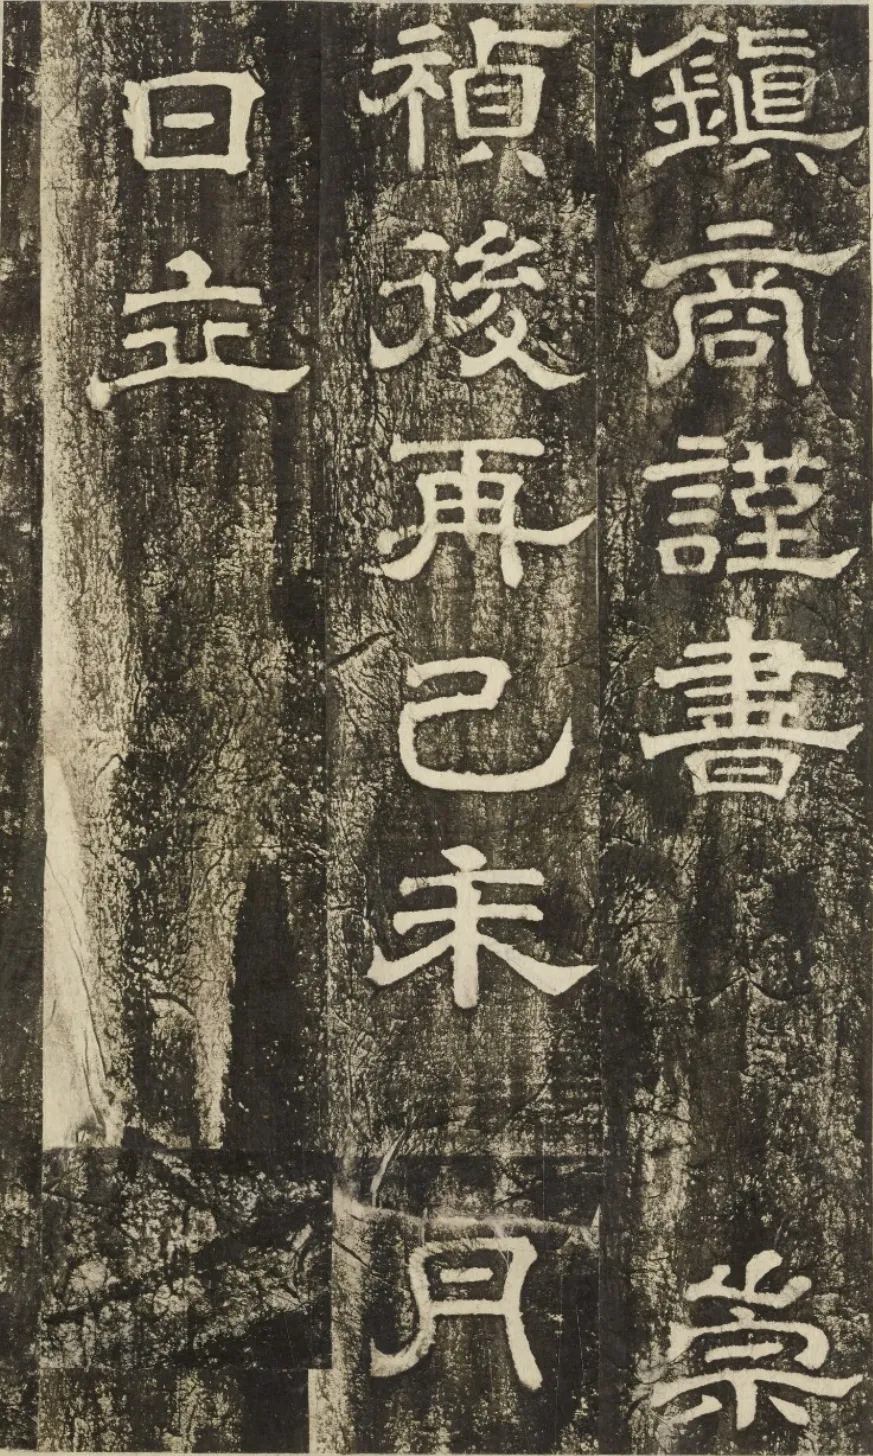 鎮商謹書 崇
禎後再己未 月
日立